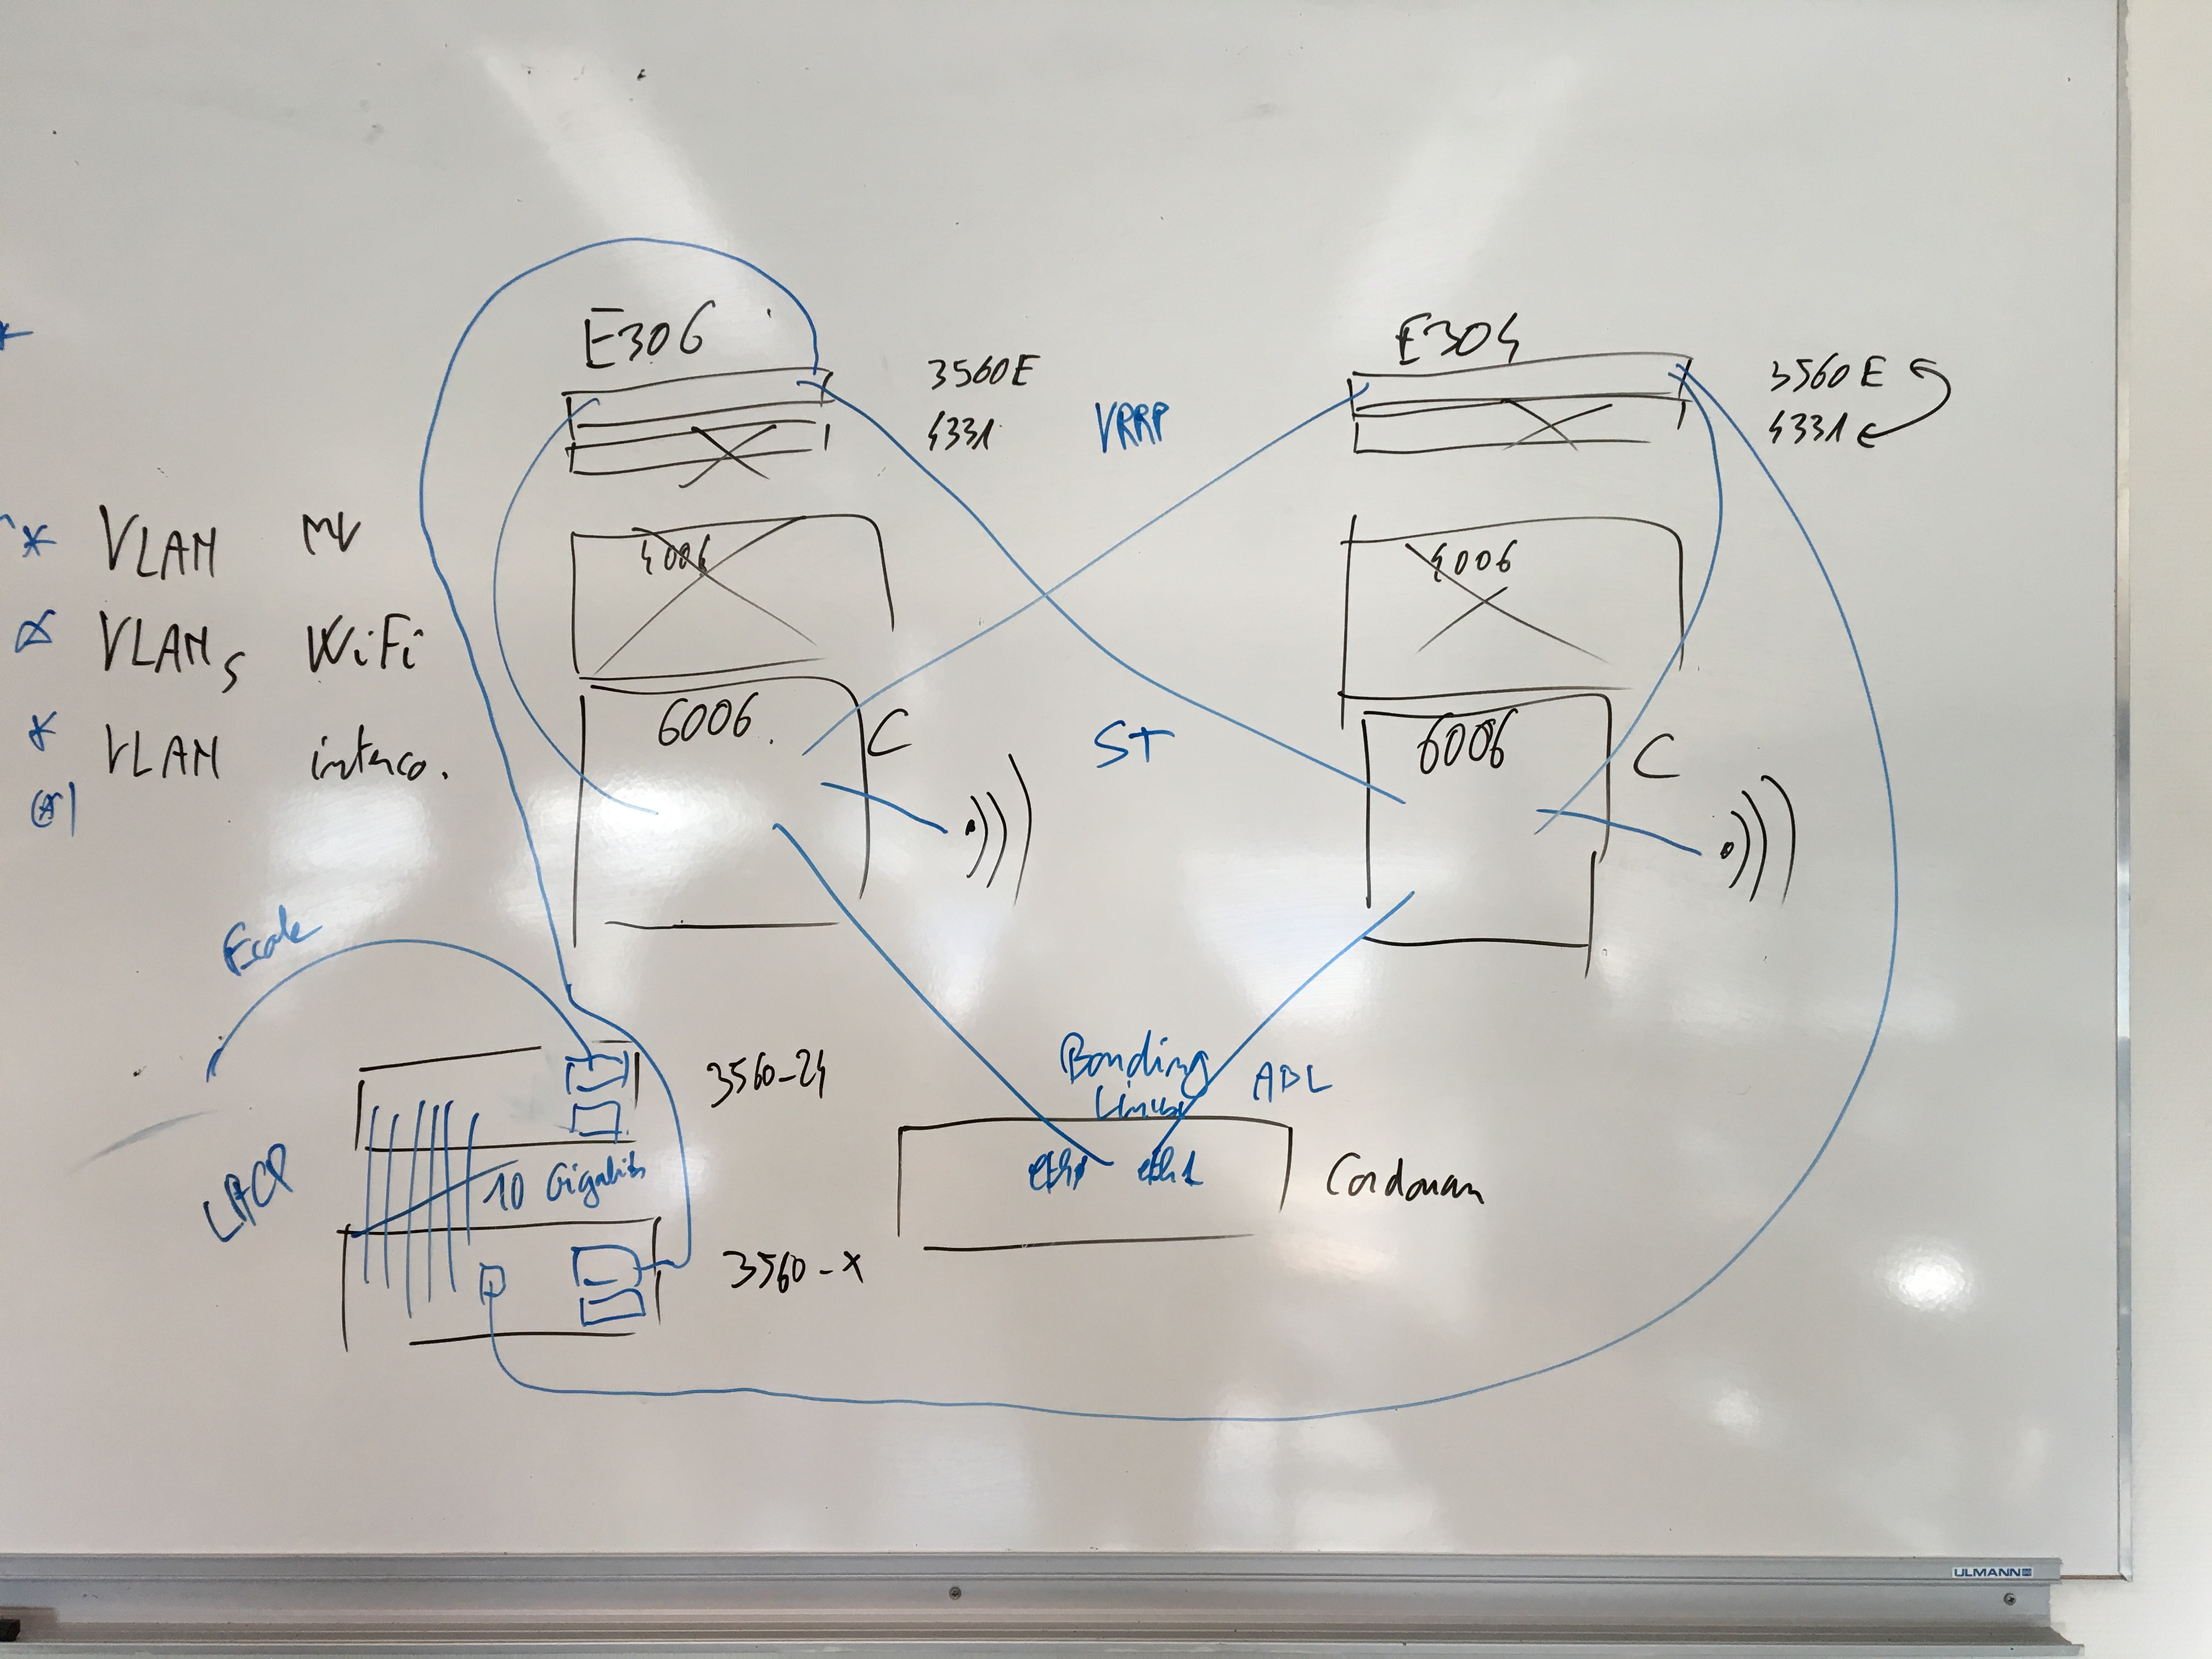 E306
E304
3560E
4331
VRRP
3560E
4331
4006
4006
* VLAN MV
VLANs WiFi
* VLAN interco.
6006
C
ST
6006
C
Ecole
3560-24
Bonding
Linux
ADL
LACP
10 Gigabits
eth1
Cordouan
3560-X
ULMANN